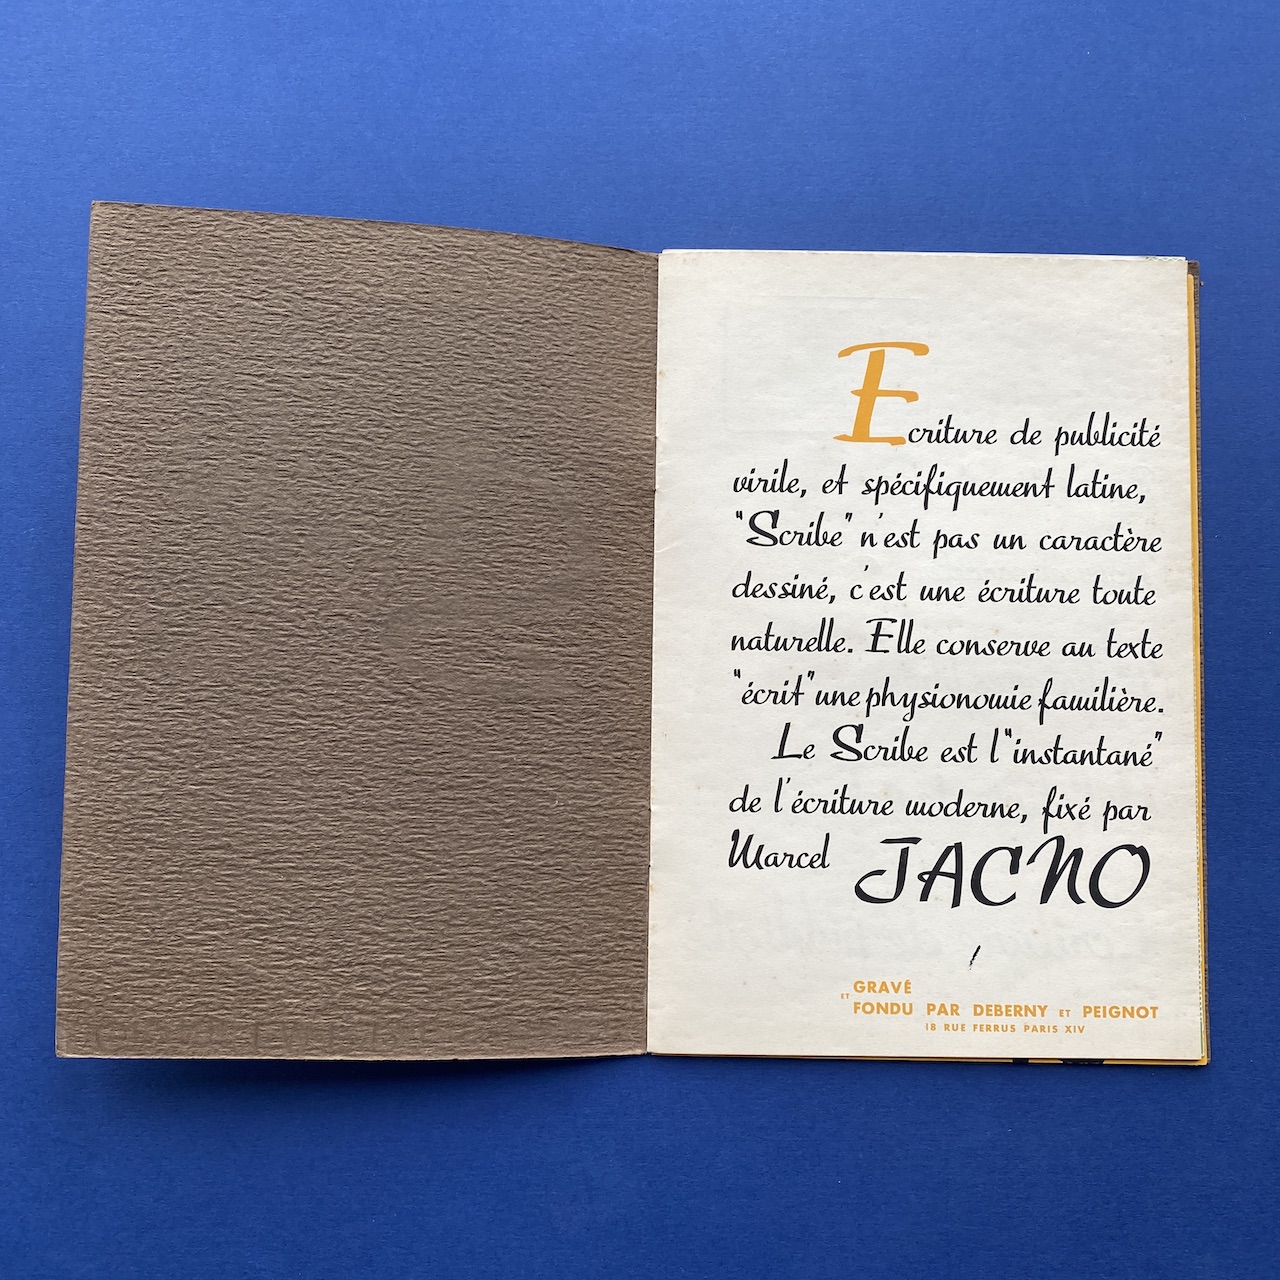 Ecriture de publicité
virile, et spécifiquement latine,
"Scribe" n'est pas un caractère
dessiné, c'est une écriture toute
naturelle. Elle conserve au texte
"écrit" une physionomie familière.
Le Scribe est l'"instantané"
de l'écriture moderne, fixé par
Marcel JACNO
GRAVÉ
ET FONDU PAR DEBERNY ET PEIGNOT
18 RUE FERRUS PARIS XIV